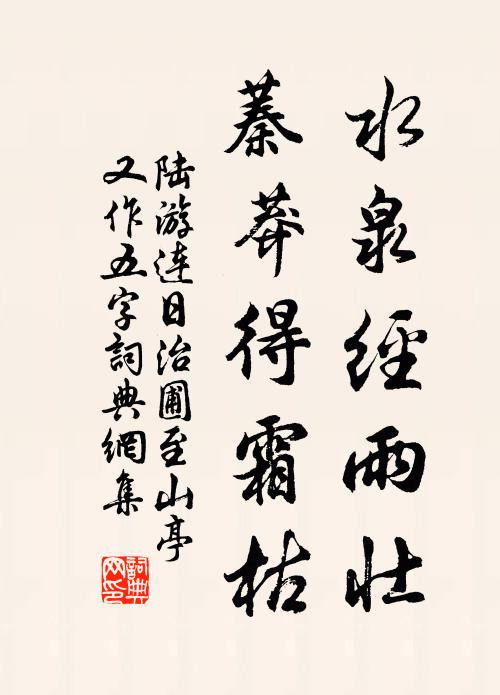 水泉經雨壯
蓁莽得霜枯
陆游连日治圃至山亭
又作五字詞典網集
詞典网印